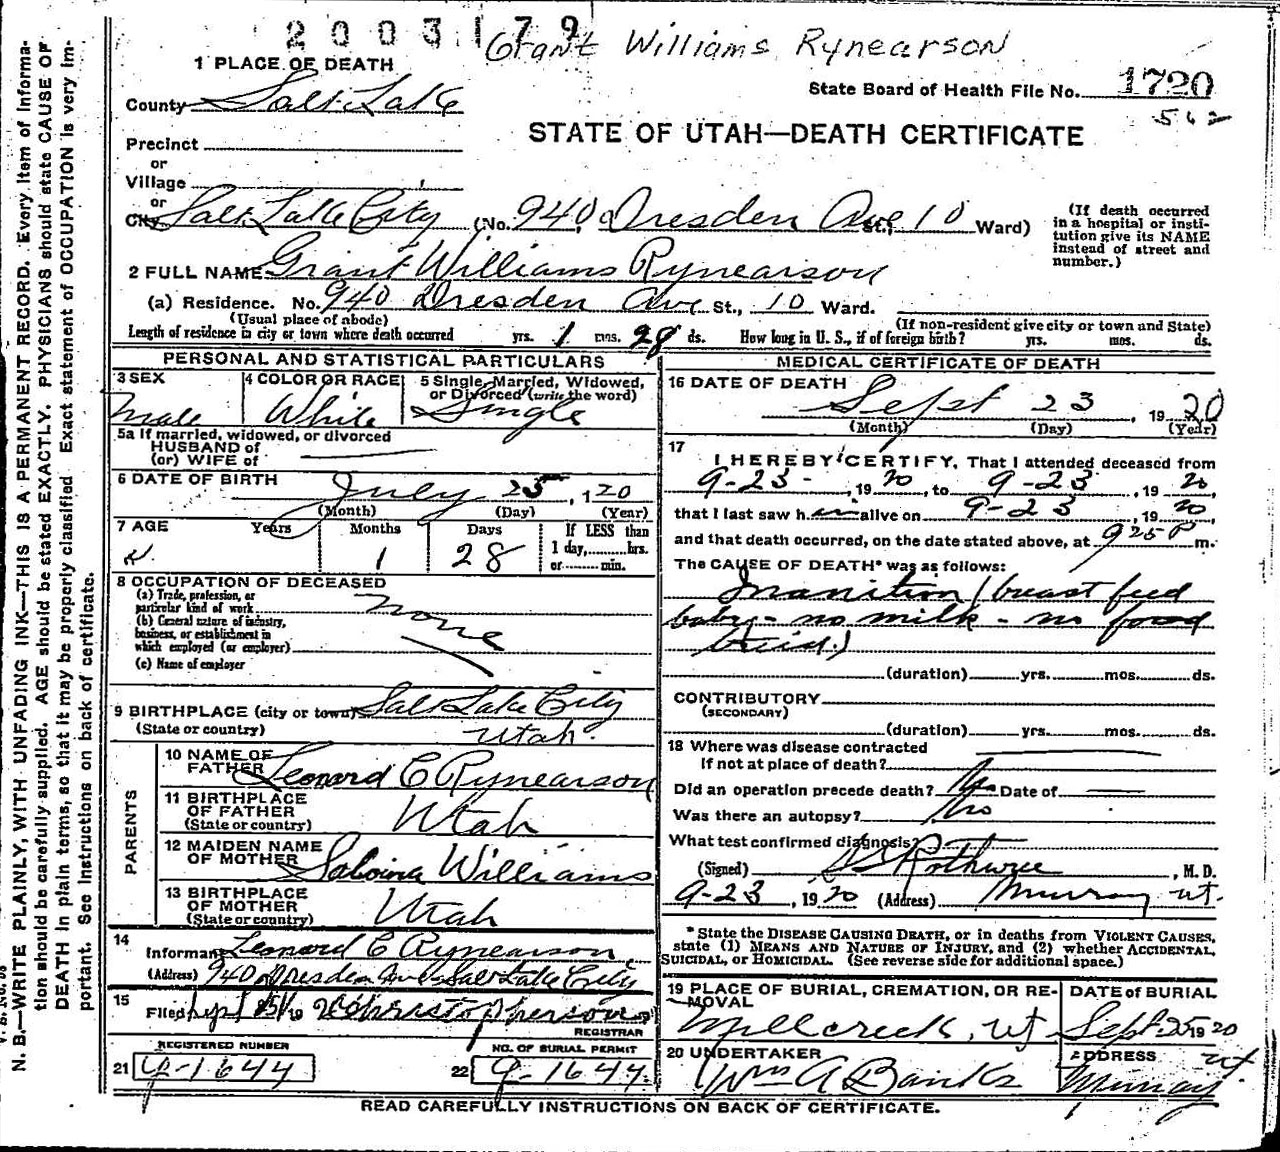 2003179
Grant Williams Rynearson
1 PLACE OF DEATH
County Salt Lake
State Board of Health File No. 1720
562
STATE OF UTAH—DEATH CERTIFICATE
Precinct
or
Village
or
City Salt Lake City (No. 940 Dresden Ave St., 10 Ward)
(If death occurred in a hospital or insti-
tution give its NAME
instead of street and
number.)
2 FULL NAME Grant Williams Rynearson
(a) Residence. No. 940 Dresden Ave St., 10 Ward.
(Usual place of abode) (If non-resident give city or town and State)
Length of residence in city or town where death occurred yrs. 1 mos. 28 ds. How long in U. S., if of foreign birth? yrs. mos. ds.
PERSONAL AND STATISTICAL PARTICULARS
3 SEX Male
4 COLOR OR RACE White
5 Single, Married, Widowed,
or Divorced (write the word) Single
5a If married, widowed, or divorced
HUSBAND of
(or) WIFE of
6 DATE OF BIRTH July 25, 1920
(Month) (Day) (Year)
7 AGE Years Months 1 Days 28 If LESS than
1 day, hrs.
or min.
8 OCCUPATION OF DECEASED
(a) Trade, profession, or
particular kind of work none
(b) General nature of industry,
business, or establishment in
which employed (or employer)
(c) Name of employer
9 BIRTHPLACE (city or town) Salt Lake City
(State or country) Utah
PARENTS
10 NAME OF
FATHER Leonard C Rynearson
11 BIRTHPLACE
OF FATHER
(State or country) Utah
12 MAIDEN NAME
OF MOTHER Sabina Williams
13 BIRTHPLACE
OF MOTHER
(State or country) Utah
14 Informant Leonard C Rynearson
(Address) 940 Dresden Ave Salt Lake City
15 Filed Sept 25, 19
REGISTRAR
REGISTERED NUMBER
21 9-1644
NO. OF BURIAL PERMIT
22 9-1644
MEDICAL CERTIFICATE OF DEATH
16 DATE OF DEATH Sept 23, 1920
(Month) (Day) (Year)
17
I HEREBY CERTIFY, That I attended deceased from
9-23-, 1920, to 9-23, 1920,
that I last saw him alive on 9-23, 1920,
and that death occurred, on the date stated above, at 925 P m.
The CAUSE OF DEATH* was as follows:
Inanition (breast feed
baby - no milk - no food
tried.)
(duration) yrs. mos. ds.
CONTRIBUTORY
(SECONDARY)
(duration) yrs. mos. ds.
18 Where was disease contracted
If not at place of death?
Did an operation precede death? No Date of
Was there an autopsy? No
What test confirmed diagnosis?
(Signed) , M. D.
9-23, 1920 (Address) Murray Ut.
* State the DISEASE CAUSING DEATH, or in deaths from VIOLENT CAUSES,
state (1) MEANS AND NATURE OF INJURY, and (2) whether ACCIDENTAL,
SUICIDAL, or HOMICIDAL. (See reverse side for additional space.)
19 PLACE OF BURIAL, CREMATION, OR RE-
MOVAL
Millcreek, Ut
DATE of BURIAL
Sept 25 1920
20 UNDERTAKER
Wm A Banks
ADDRESS
Murray Ut.
READ CAREFULLY INSTRUCTIONS ON BACK OF CERTIFICATE.
N. B.—WRITE PLAINLY, WITH UNFADING INK—THIS IS A PERMANENT RECORD. Every item of informa-
tion should be carefully supplied. AGE should be stated EXACTLY. PHYSICIANS should state CAUSE OF
DEATH in plain terms, so that it may be properly classified. Exact statement of OCCUPATION is very im-
portant. See instructions on back of certificate.